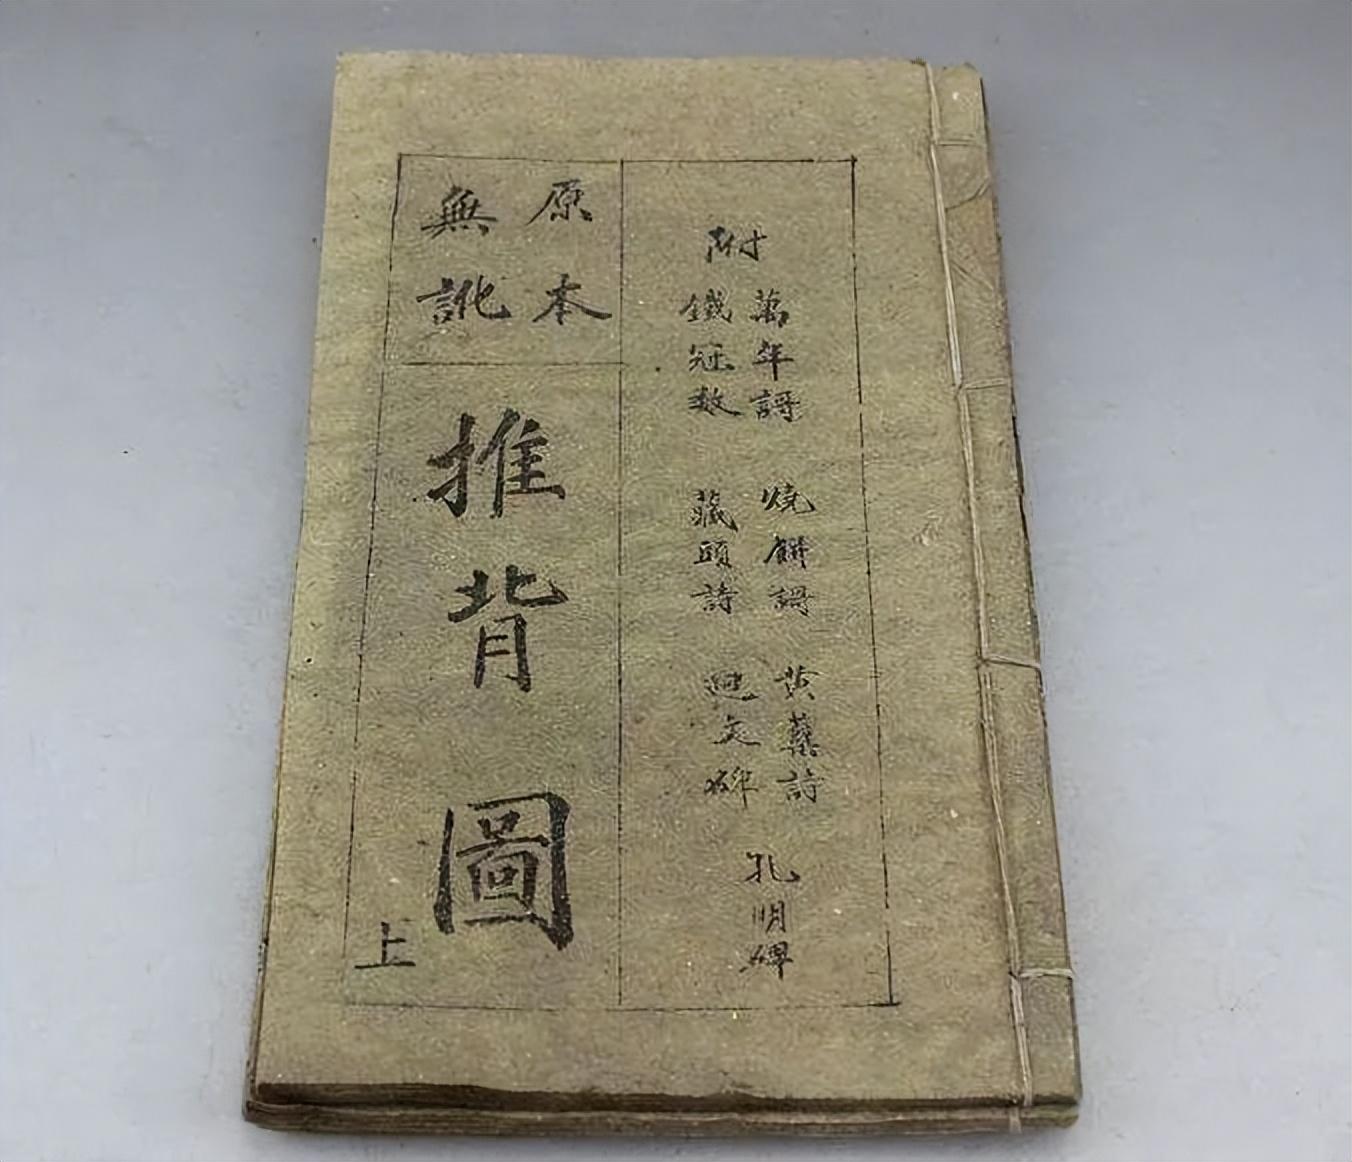 附
萬年謌 燒餅謌 黄蘗詩 孔明碑
鐵冠数 藏頭詩 迴文碑
原本
無訛
推背圖
上